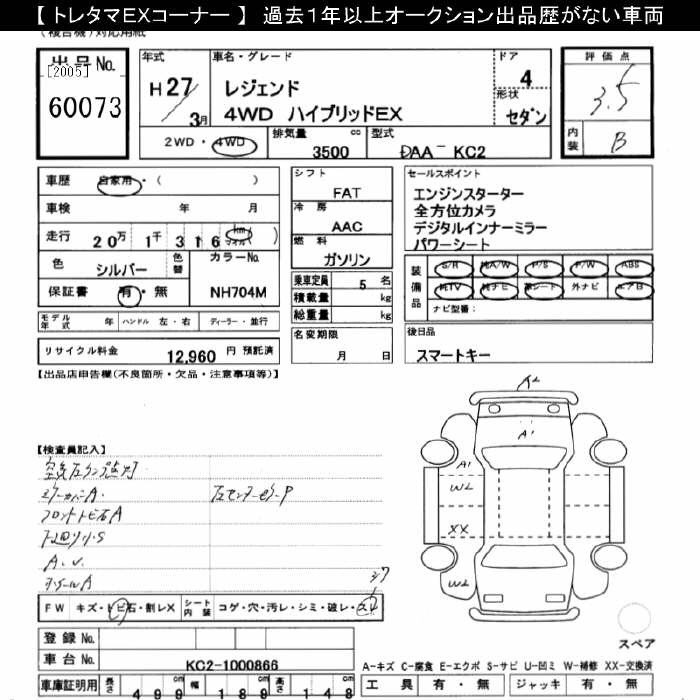 【 トレタマEXコーナー 】 過去1年以上オークション出品歴がない車両
(複合機)対応用紙
出品No.
[2005]
60073
年式
H27/3月
車名・グレード
レジェンド
4WD ハイブリッドEX
ドア
4
形状
セダン
評価点
3.5
内装
B
2WD・4WD
排気量
3500 cc
型式
DAA KC2
車歴 自家用・( )
車検 年 月
走行 20万 1千 316 km マイル ( )
色 シルバー 色替
カラーNo.
NH704M
保証書 有・無
モデル年式 年 ハンドル 左・右 ディーラー・並行
リサイクル料金 12,960 円 預託済
シフト
FAT
冷房
AAC
燃料
ガソリン
乗車定員 5 名
積載量 kg
総重量 kg
名変期限
月 日
セールスポイント
エンジンスターター
全方位カメラ
デジタルインナーミラー
パワーシート
装備品
S/R 純A/W P/S P/W ABS
純TV 純ナビ 革シート 外ナビ エアB
ナビ型番:
後日品
スマートキー
【出品店申告欄(不良箇所・欠品・注意事項等)】
【検査員記入】
ミラーカバーA.
フロントトビ石A
下廻りS
A.U.
A2
A1
A1
W2
XX
W2
FW キズ・トビ石・割レX
シート内装 コゲ・穴・汚レ・シミ・破レ・スレ
登録No.
車台No. KC2-1000866
車庫証明用 長さ 499 cm 幅 189 cm 高さ 148 cm
スペア
A-キズ C-腐食 E-エクボ S-サビ U-凹ミ W-補修 XX-交換済
工具 有・無 ジャッキ 有・無